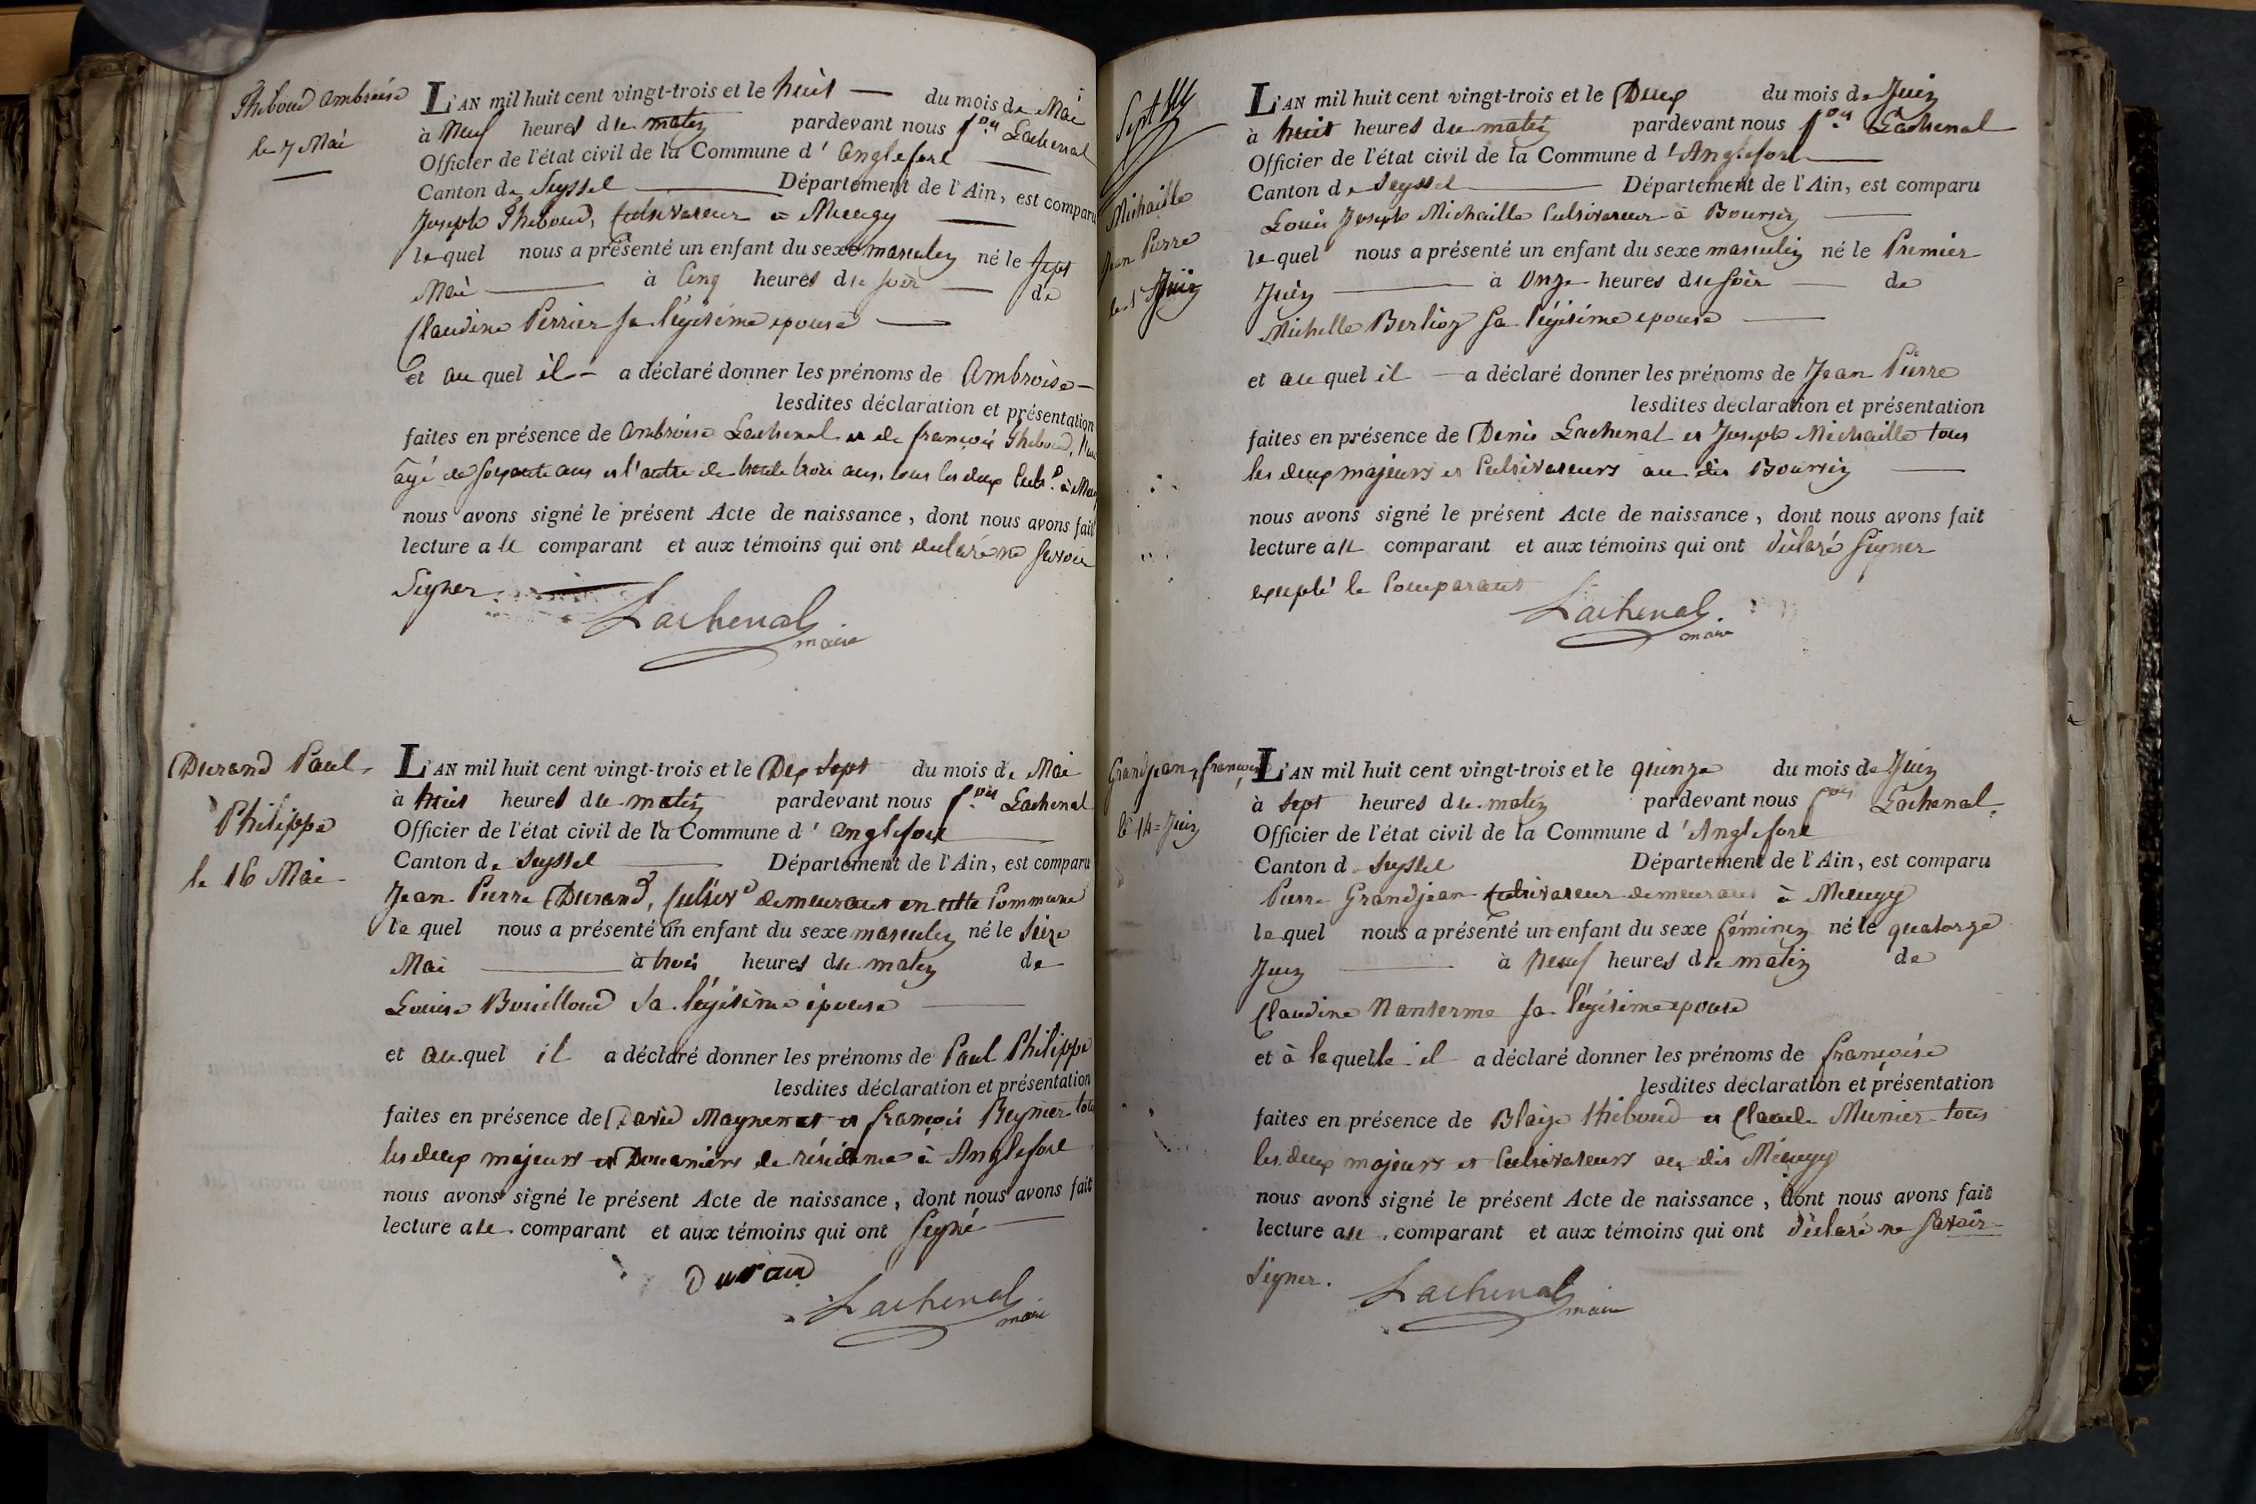 Thiboud Ambroise
le 7 Mai
L'AN mil huit cent vingt-trois et le huit du mois de Mai
à Neuf heures du matin pardevant nous f.ois Lachenal
Officier de l'état civil de la Commune d'Anglefort
Canton de Seyssel Département de l'Ain, est comparu
Joseph Thiboud, Cultivateur à Meugy
lequel nous a présenté un enfant du sexe masculin né le Sept
Mai à Cinq heures du soir de
Claudine Perrier sa légitime epouse
et auquel il a déclaré donner les prénoms de Ambroise
lesdites déclaration et présentation
faites en présence de Ambroise Lachenal et de françois Thiboud, l'un
âgé de soixante ans et l'autre de trente trois ans, tous les deux Cult.s à
nous avons signé le présent Acte de naissance, dont nous avons fait
lecture au comparant et aux témoins qui ont declaré ne savoir
Signer.
Lachenal
maire
Durand Paul
Philippe
le 16 Mai
L'AN mil huit cent vingt-trois et le Dix Sept du mois de Mai
à huit heures du matin pardevant nous f.ois Lachenal
Officier de l'état civil de la Commune d'Anglefort
Canton de Seyssel Département de l'Ain, est comparu
Jean Pierre Durand, Cultiv.r demeurant en cette Commune
lequel nous a présenté un enfant du sexe masculin né le Seize
Mai à trois heures du matin de
Louise Bouilloud sa légitime épouse
et auquel il a déclaré donner les prénoms de Paul Philippe
lesdites déclaration et présentation
faites en présence de David Maynenat et françois Reynier tous
les deux majeurs et Douaniers de résidence à Anglefort
nous avons signé le présent Acte de naissance, dont nous avons fait
lecture au comparant et aux témoins qui ont Signé
Durand
Lachenal
maire
Sept
Michaille
Jean Pierre
le 1er Juin
L'AN mil huit cent vingt-trois et le Deux du mois de Juin
à huit heures du matin pardevant nous f.ois Lachenal
Officier de l'état civil de la Commune d'Anglefort
Canton de Seyssel Département de l'Ain, est comparu
Louis Joseph Michaille Cultivateur à Boursin
lequel nous a présenté un enfant du sexe masculin né le Premier
Juin à Onze heures du soir de
Michelle Berlioz sa légitime epouse
et auquel il a déclaré donner les prénoms de Jean Pierre
lesdites déclaration et présentation
faites en présence de Denis Lachenal et Joseph Michaille tous
les deux majeurs et Cultivateurs au dit Boursin
nous avons signé le présent Acte de naissance, dont nous avons fait
lecture au comparant et aux témoins qui ont déclaré signer
excepté le Comparant
Lachenal
maire
Grandjean françoise
le 14 Juin
L'AN mil huit cent vingt-trois et le quinze du mois de Juin
à sept heures du matin pardevant nous f.ois Lachenal
Officier de l'état civil de la Commune d'Anglefort
Canton de Seyssel Département de l'Ain, est comparu
Pierre Grandjean Cultivateur demeurant à Meugy
lequel nous a présenté un enfant du sexe féminin né le quatorze
Juin à Neuf heures du matin de
Claudine Nanterme sa légitime epouse
et à laquelle il a déclaré donner les prénoms de françoise
lesdites déclaration et présentation
faites en présence de Blaise thiboud et Claude Munier tous
les deux majeurs et Cultivateurs au dit Méugy
nous avons signé le présent Acte de naissance, dont nous avons fait
lecture au comparant et aux témoins qui ont déclaré ne savoir
Signer.
Lachenal
maire